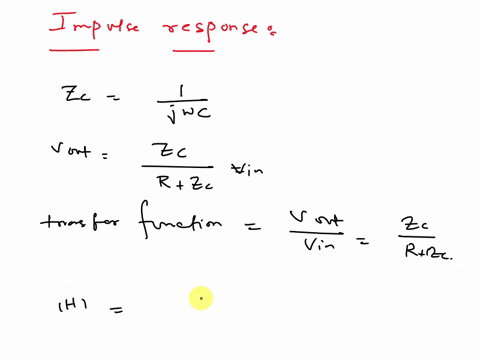 Impulse response:
Zc = 1 / jωC
Vout = Zc / R + Zc Vin
transfer function = Vout / Vin = Zc / R+Zc.
|H| =